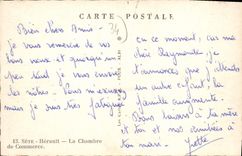 CARTE POSTALE
Bien chers Amis
je vous remercie de vos
bons vœux et quoiqu'un
peu tard je vous envoie
les nôtres. Vous m'excuserez
mais je suis très fatiguée
en ce moment, car ma
chère Raymonde, je
t'annonce que j'attends
un autre enfant, la
famille augmente.
Bons baisers à ta mère
et toi et nos amitiés à
ton mari.
Yvette
13. SÈTE - Hérault - La Chambre
de Commerce.